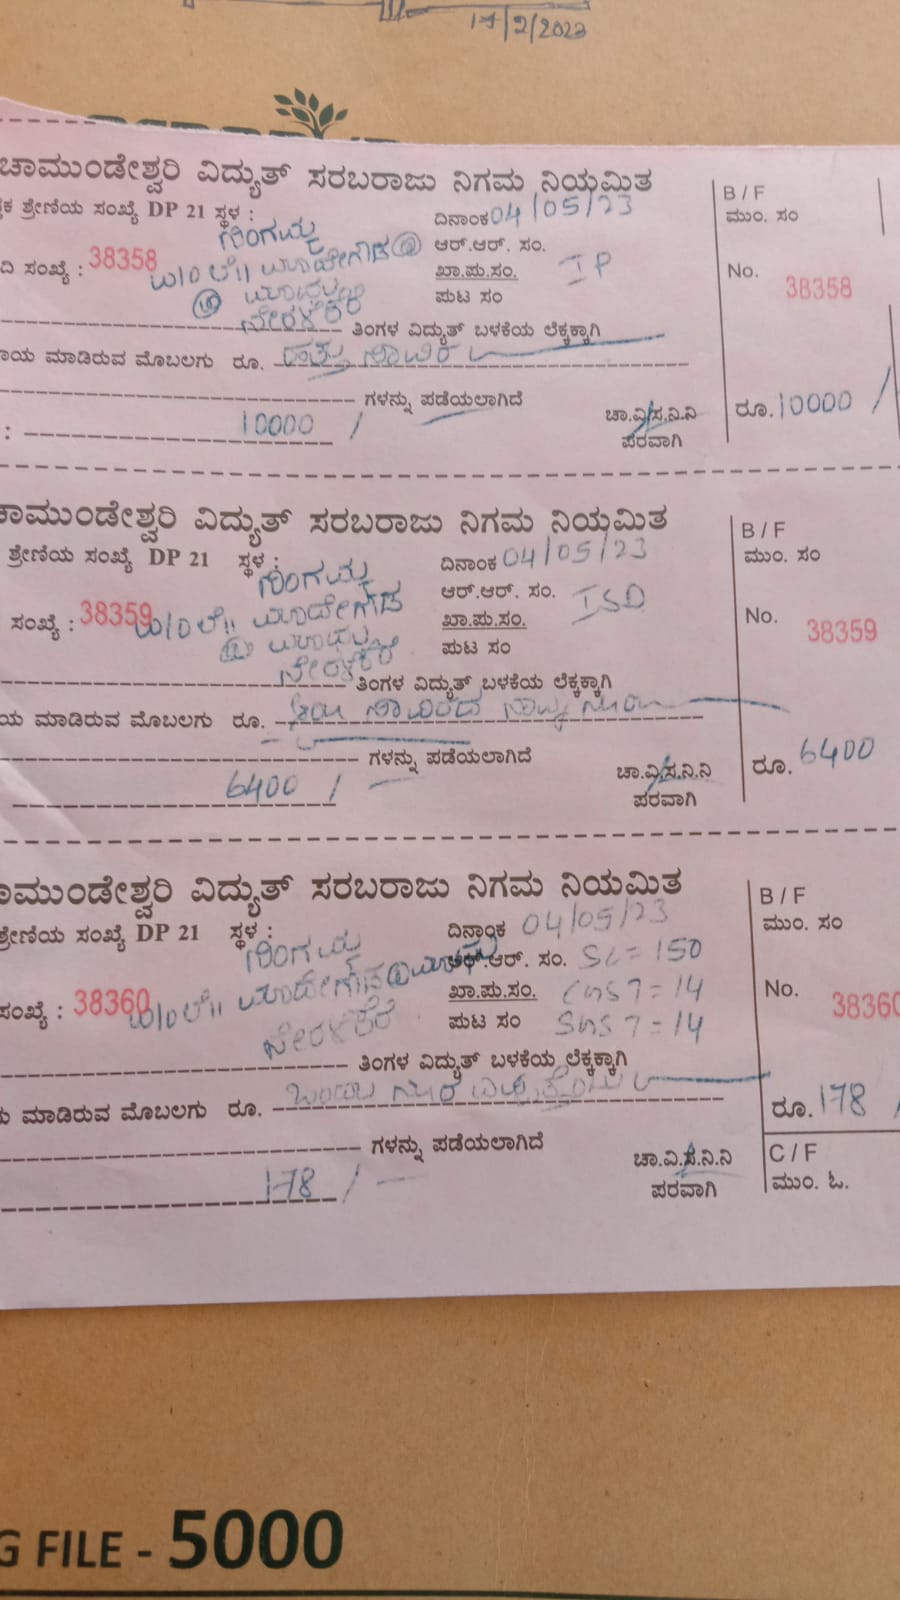 17/2/2023
ಚಾಮುಂಡೇಶ್ವರಿ ವಿದ್ಯುತ್ ಸರಬರಾಜು ನಿಗಮ ನಿಯಮಿತ
ಕ ಶ್ರೇಣಿಯ ಸಂಖ್ಯೆ DP 21 ಸ್ಥಳ : ದಿನಾಂಕ 04/05/23
ನಿಂಗಮ್ಮ ಆರ್.ಆರ್. ಸಂ.
ದಿ ಸಂಖ್ಯೆ : 38358 W/O ಲೇ|| ಮಾದೇಗೌಡ @ ಖಾ.ಮ.ಸಂ. IP
ಪುಟ ಸಂ
ನೇರಳೆಕೆರೆ
ತಿಂಗಳ ವಿದ್ಯುತ್ ಬಳಕೆಯ ಲೆಕ್ಕಕ್ಕಾಗಿ
ಾಯ ಮಾಡಿರುವ ಮೊಬಲಗು ರೂ. ಹತ್ತು ಸಾವಿರ
ಗಳನ್ನು ಪಡೆಯಲಾಗಿದೆ
: 10000 / ಚಾ.ವಿ.ಸ.ನಿ.ನಿ
ಪರವಾಗಿ
B / F
ಮುಂ. ಸಂ
No. 38358
ರೂ. 10000 /
ಚಾಮುಂಡೇಶ್ವರಿ ವಿದ್ಯುತ್ ಸರಬರಾಜು ನಿಗಮ ನಿಯಮಿತ
ಶ್ರೇಣಿಯ ಸಂಖ್ಯೆ DP 21 ಸ್ಥಳ : ದಿನಾಂಕ 04/05/23
ನಿಂಗಮ್ಮ ಆರ್.ಆರ್. ಸಂ.
ಸಂಖ್ಯೆ : 38359 W/O ಲೇ|| ಮಾದೇಗೌಡ ಖಾ.ಮ.ಸಂ. ISD
@ ಪುಟ ಸಂ
ನೇರಳೆಕೆರೆ
ತಿಂಗಳ ವಿದ್ಯುತ್ ಬಳಕೆಯ ಲೆಕ್ಕಕ್ಕಾಗಿ
ಯ ಮಾಡಿರುವ ಮೊಬಲಗು ರೂ. ಆರು ಸಾವಿರದ ನಾಲ್ಕು ನೂರು
ಗಳನ್ನು ಪಡೆಯಲಾಗಿದೆ
6400 / ಚಾ.ವಿ.ಸ.ನಿ.ನಿ
ಪರವಾಗಿ
B / F
ಮುಂ. ಸಂ
No. 38359
ರೂ. 6400
ಾಮುಂಡೇಶ್ವರಿ ವಿದ್ಯುತ್ ಸರಬರಾಜು ನಿಗಮ ನಿಯಮಿತ
ಶ್ರೇಣಿಯ ಸಂಖ್ಯೆ DP 21 ಸ್ಥಳ : ದಿನಾಂಕ 04/05/23
ನಿಂಗಮ್ಮ ಆರ್.ಆರ್. ಸಂ. SC = 150
ಸಂಖ್ಯೆ : 38360 W/O ಲೇ|| ಮಾದೇಗೌಡ @ ಖಾ.ಮ.ಸಂ. CGST = 14
ನೇರಳೆಕೆರೆ ಪುಟ ಸಂ SGST = 14
ತಿಂಗಳ ವಿದ್ಯುತ್ ಬಳಕೆಯ ಲೆಕ್ಕಕ್ಕಾಗಿ
ಯ ಮಾಡಿರುವ ಮೊಬಲಗು ರೂ. ಒಂದು ನೂರ ಎಪ್ಪತ್ತೆಂಟು
ಗಳನ್ನು ಪಡೆಯಲಾಗಿದೆ
178 / ಚಾ.ವಿ.ಸ.ನಿ.ನಿ
ಪರವಾಗಿ
B / F
ಮುಂ. ಸಂ
No. 38360
ರೂ. 178 /
C / F
ಮುಂ. ಓ.
G FILE - 5000